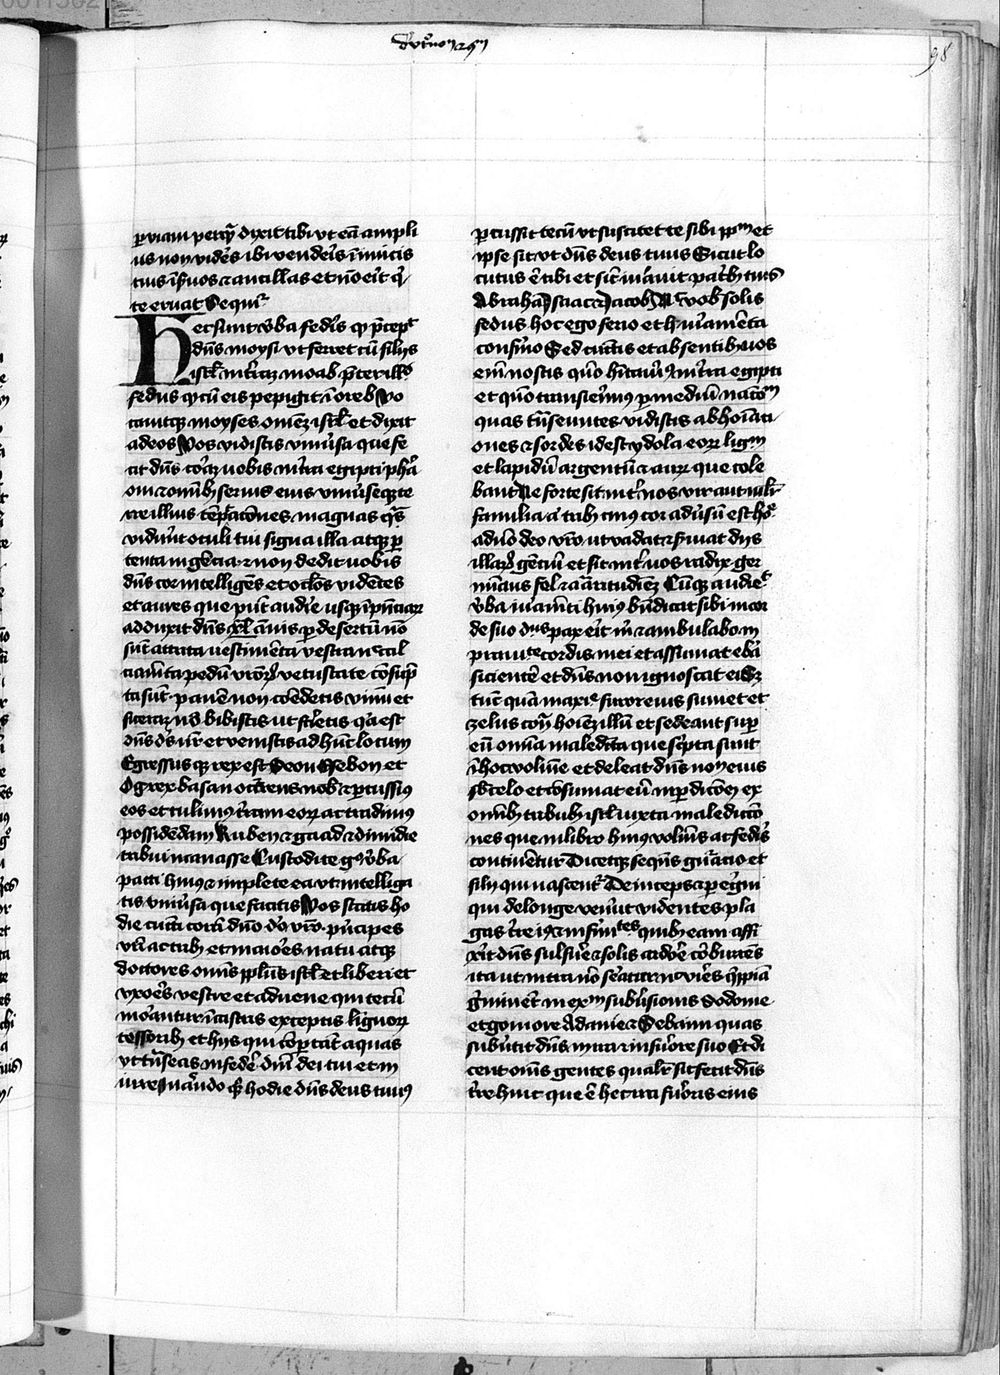 98
per viam per qua dixit tibi vt ea ampli
us non videres ibi venderis inimicis
tuis in seruos et ancillas et no erit q
te eruat Sequit
Hec sunt vba federis q precept
dns moysi vt feriret cu filiis
isrl in terra moab preter illud
fedus qd cu eis pepigit in oreb Vo
cauitq moyses omnem isrl et dixit
ad eos Vos vidistis vniuersa que fe
cit dns cora uobis in terra egipti phara
oni et omnib seruis eius vniuseq te
rre illius temptaciones magnas quas
viderut oculi tui signa illa atq por
tenta ingencia et non dedit uobis
dns cor intelligens et oculos videntes
et aures que possint audire usq in presentiarum
adduxit dns xl annis per desertum no
sunt attrita uestimenta vestra nec cal
ciamenta pedu vrorum vetustate consump
ta sunt panem non comedistis vinum et
siceram no bibistis ut sciretis quia est
dns ds vr et venistis ad hunc locum
Egressusq rex est Seon Esebon et
Og rex basan occurrens nob et percussim
eos et tulimus terram eorum ac tradidimus
possidendam Ruben et gaad et dimidie
tribui manasse Custodite g vba
pacti huius et implete ea vt intelliga
tis vniuersa que facitis Vos statis ho
die cuncti coram dno deo vro principes
vri ac tribus et maiores natu atq
doctores omnis populus isrl et liberi et
vxores vestre et aduene qui tecu
morantur in castris exceptis lignorum
cessoribus et hys qui comportant aquas
vt transeas in federe dni dei tui et in
iureiurando qd hodie dns deus tuus
percussit tecum vt suscitet te sibi ppm et
ipse sit vt dns deus tuus Sicut lo
cutus e tibi et sicut iurauit patribus tuis
Abraham Isaac et Iacob Nec vob solis
fedus hoc ego ferio et h iuramenta
confirmo Sed cunctis et absentibus uos
enim nostis quo habitauimus in terra egipti
et quo transierimus per medium nacionum
quas transeuntes vidistis abhominaci
ones et sordes id est ydola eorum lignum
et lapidum argentum et aurum que cole
bant Ne forte sit inter uos vir aut mulier
familia aut tribus cuius cor aduersum est hodie
a dno deo vro ut vadat et seruiat diis
illarum gencium et sit inter uos radix ger
minans fel et amaritudinem Cumq audierit
vba iuramenti huius benedicat sibi in cor
de suo dicens pax erit mihi et ambulabo in
prauitate cordis mei et assumat ebria
sicientem et dns non ignoscat ei Sed
tunc quam maxime furor eius fumet et
zelus contra hominem illum et sedeant super
eum omnia maledicta que scripta sunt
in hoc volumine et deleat dns nomen eius
sub celo et consumat eum in perdicionem ex
omnib tribub isrl iuxta maledictio
nes que in libro huius voluminis ac federis
continentur Dicetq sequens generacio et
filii qui nascentur Deinceps et peregrini
qui de longe venerint videntes pla
gas terre illius et infirmitates quib eam affli
xerit dns sulfure et solis ardore comburens
ita ut ultra no seratur nec virens quippiam
germinet in exemplum subuersionis Sodome
et gomore Adame et Seboim quas
subuertit dns in ira et in furore suo Et di
cent omnes gentes quare sic fecit dns
terre huic que e hec ira furoris eius